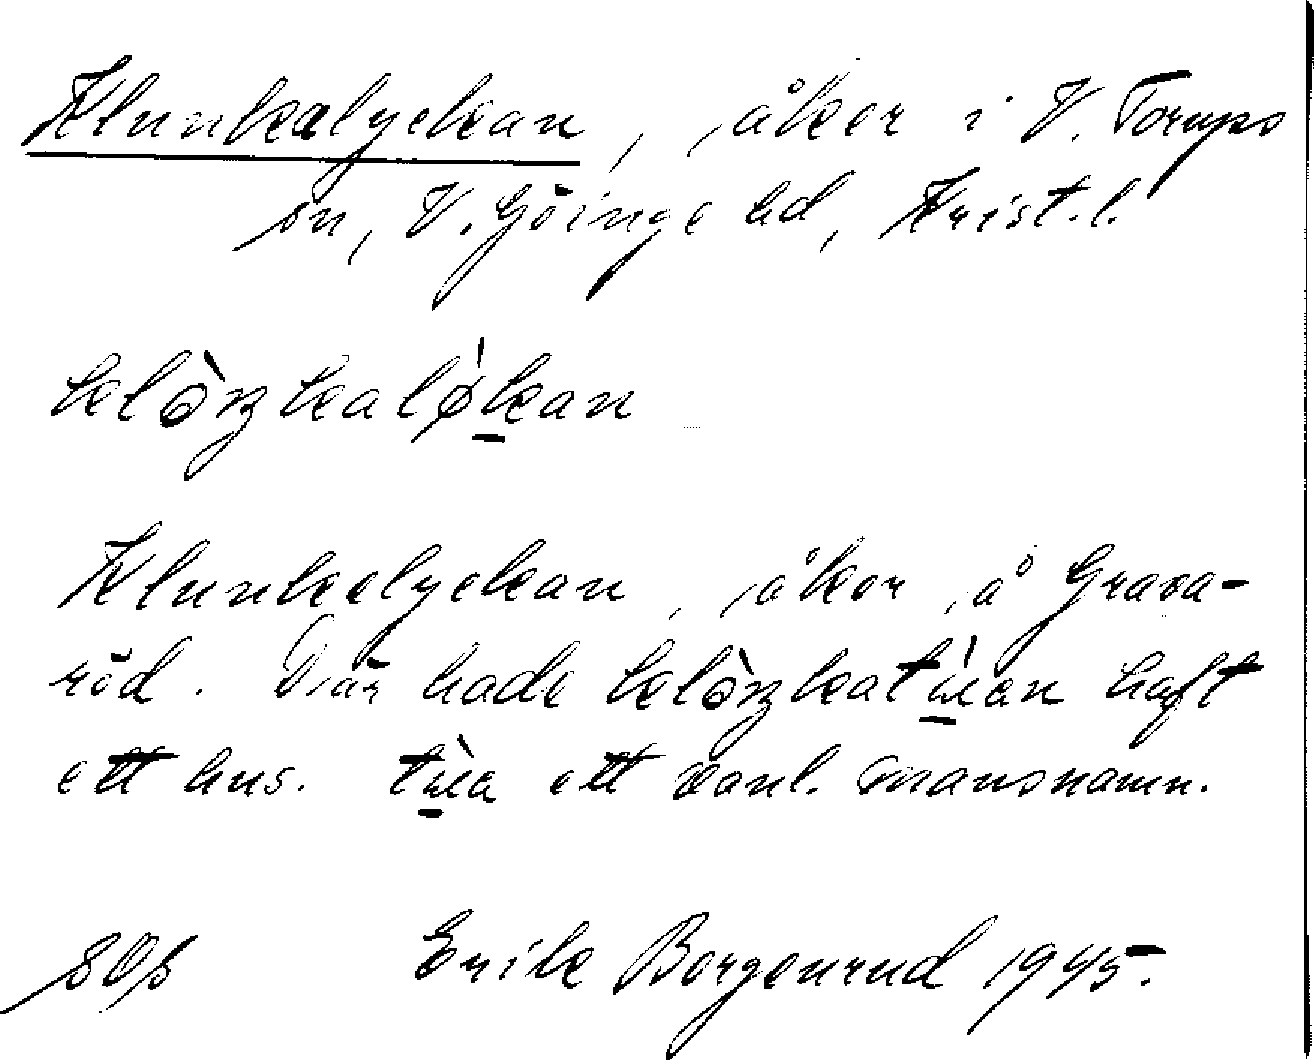 Klunkalyckan, åker i V. Torups
sn, V. Göinge hd, Krist. l.
klòŋkaløkan
Klunkelyckan, åker å Grava-
röd. Där hade haft
ett hus. ett vanl. mansnamn.
Erik Borgenrud 1945.